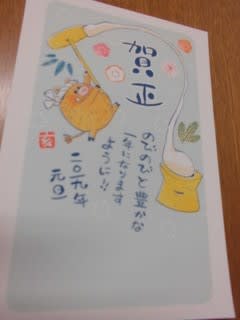 賀正
のびのびと豊かな
一年になります
ように!!
二〇一九年
元旦
亥